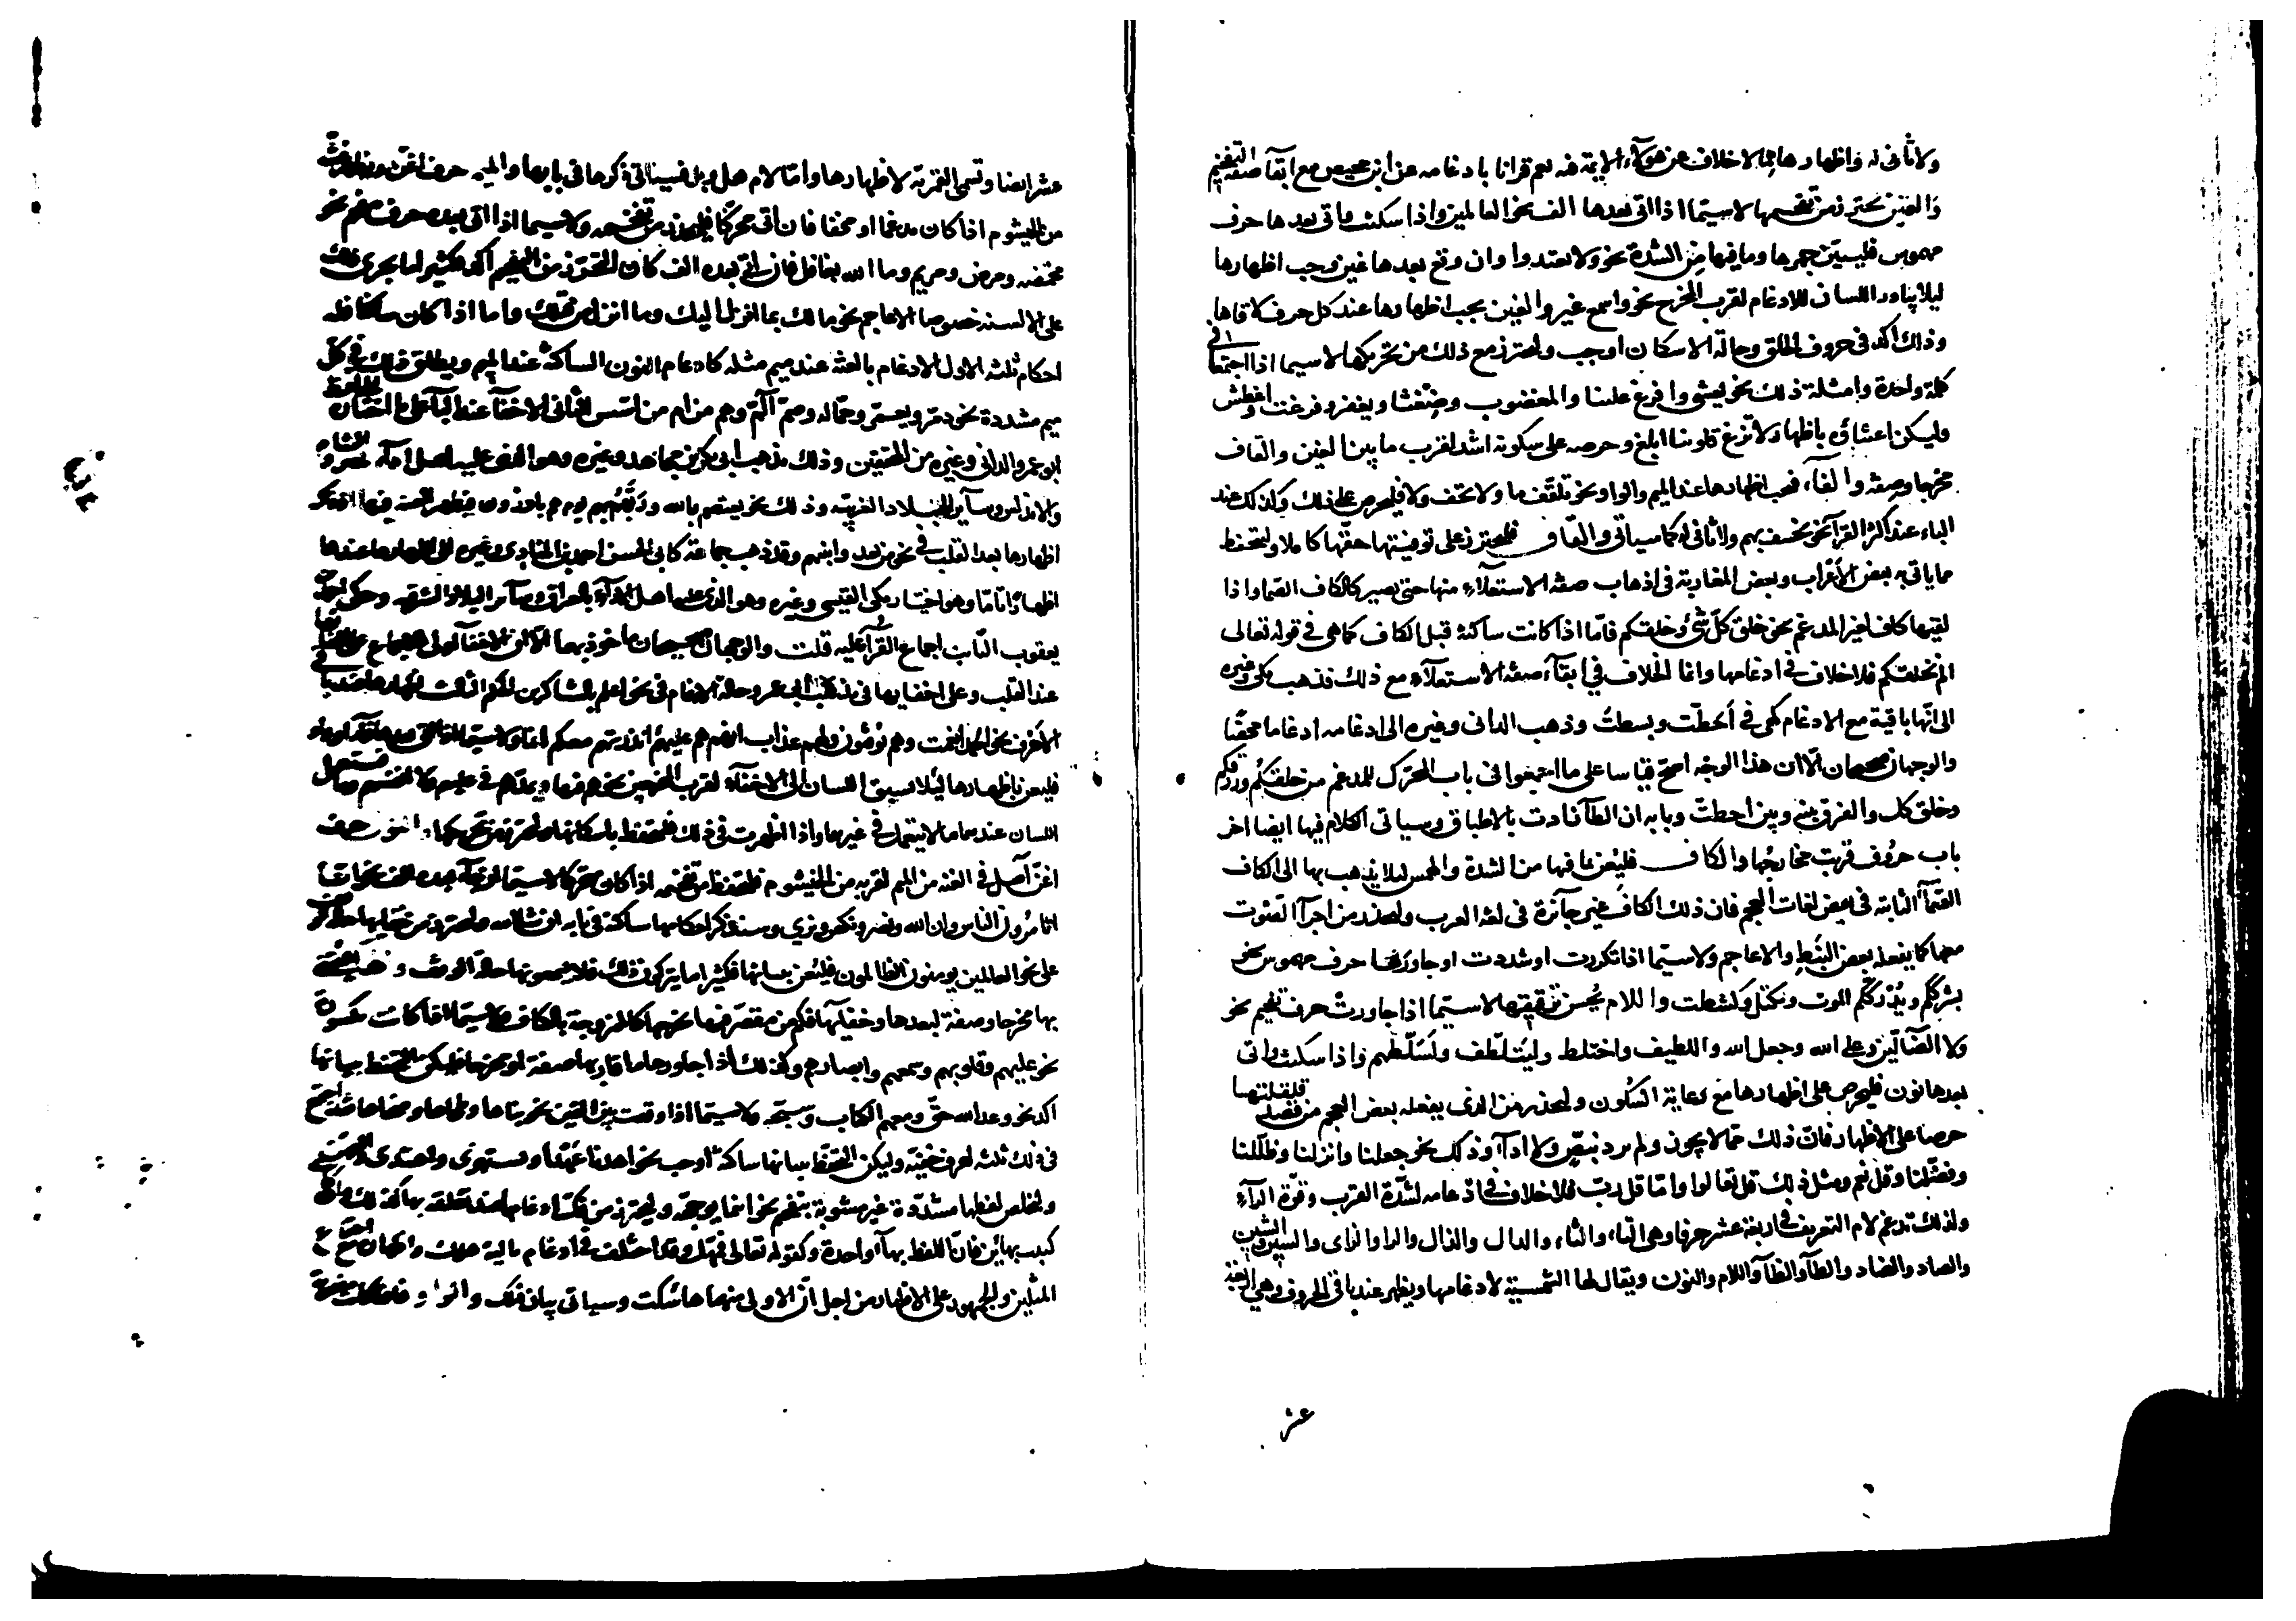 ولا ثانى له واظهارها مما لا خلاف عن هؤلاء الايمة فيه نعم قرانا بادغامه عن ابن محيصن مع ابقآ صفة التفخيم
والغين يحترز من تفخيمها لاسيما اذا اتى بعدها الف نحو العالمين واذا سكنت واتى بعدها حرف
مهموس فليبين جهرها وما فيها من الشدة نحو ولا تعتدوا وان وقع بعدها غين وجب اظهارها
ليلا يبادر اللسان للادغام لقرب المخرج نحو واسمع غير والغين يجب اظهارها عند كل حرف لاقاها
وذلك اكد فى حروف الحلق وحالة الاسكان اوجب وليحترز مع ذلك من تحريكها لاسيما اذا اجتمعا فى
كلمة واحدة وامثلة ذلك نحو يغشى وافرغ علينا والمغضوب وضغثا ويغفر وفرغت واغطش
وليكن اعتناؤه باظهار لا تزغ قلوبنا ابلغ وحرصه على سكونه اشد لقرب ما بين الغين والقاف
مخرجا وصفة والفآء فيجب اظهارها عند الميم والواو نحو تلقف ما ولا تخف ولا فليحرص على ذلك وكذلك عند
الباء عند اكثر القرآء نحو نخسف بهم ولا ثانى له كما سياتى والقاف فليحترز على توفيتها حقها كاملا وليتحفظ
مما ياتى به بعض الاعراب وبعض المغاربة فى اذهاب صفة الاستعلاء منها حتى تصير كالكاف الصمآ واذا
لقيها كاف لغير المدغم نحو خلق كل شئ وخلقكم فاما اذا كانت ساكنة قبل الكاف كما هى فى قوله تعالى
الم نخلقكم فلا خلاف فى ادغامها وانما الخلاف فى ابقآء صفة الاستعلآء مع ذلك فذهب مكى وغيره
الى انها باقية مع الادغام كهى فى احطت وبسطت وذهب الدانى وغيره الى ادغامه ادغاما محضا
والوجهان صحيحان الا ان هذا الوجه اصح قياسا على ما اجمعوا فى باب المحرك للمدغم من خلقكم ورزقكم
وخلق كل والفرق بينه وبين احطت وبابه ان الطآ زادت بالاطباق وسياتى الكلام فيها ايضا اخر
باب حروف قربت مخارجها والكاف فليعن بما فيها من الشدة والهمس ليلا يذهب بها الى الكاف
الصمآ الثابته فى بعض لغات العجم فان ذلك الكاف غير جآئزة فى لغة العرب وليحذر من اجرآ الصوت
معها كما يفعله بعض النبط والاعاجم ولاسيما اذا تكررت او شددت او جاورها حرف مهموس نحو
بشرككم ويدرككم الموت ونكتل وكشطت واللام يحسن ترقيقها لاسيما اذا جاورت حرف تفخيم نحو
ولا الضآلين وعلى الله وجعل الله واللطيف واختلط وليتلطف ولسلطهم واذا سكنت واتى
بعدها نون فليحرص على اظهارها مع رعاية السكون وليحذر من الذى يفعله بعض العجم من قصد قلقلتها
حرصا على الاظهار فان ذلك مما لا يجوز ولم يرد بنص ولا ادآء وذلك نحو جعلنا وانزلنا وظللنا
وفضلنا وقل نعم ومثل ذلك قل تعالوا واما قل رب فلا خلاف فى ادغامه لشدة القرب وقوة الرآء
ولذلك تدغم لام التعريف فى اربعة عشر حرفا وهى التاء والثاء والدال والذال والرا والزاى والسين والشين
والصاد والضاد والطآ والظآ واللام والنون ويقال لها الشمسية لادغامها ويظهر عند باقى الحروف وهى اربعة
عشر
عشر ايضا وتسمى القمرية لاظهارها واما لام هل وبل فسياتى ذكرها فى بابها والميم حرف اغن
من الخيشوم اذا كان مدغما او مخفا فان اتى محركا فليحذر من تفخيمه ولاسيما اذا اتى بعده حرف مفخم نحو
مخمصه ومرض ومريم وما الله بغافل فان اتى بعده الف كان التحرز من التفخيم اكد فكثيرا ما يجرى ذلك
على الالسنه خصوصا الاعاجم نحو مالك بما انزل اليك وما انزل من قبلك واما اذا كان ساكنا فله
احكام ثلثه الاول الادغام بالغنه عند ميم مثله كادغام النون الساكنة عند الميم ويطلق ذلك فى كل
ميم مشددة نحو دمر ويعمر وحماله وصم آلم وهم من ام من اسس الثانى الاخفآ عند البآ على ما اختاره
ابو عمرو الدانى وغيره من المحققين وذلك مذهب ابى بكر بن مجاهد وغيره وهو الذى عليه اهل الادآء بمصر والشام
والاندلس وسآير البلاد الغربيه وذلك نحو يعتصم بالله وربهم بهم يوم هم بارزون فيظهر الغنة فيها اذ ذاك
اظهارها بعد القلب فى نحو من بعد وانبئهم وقد ذهب جماعة كابى الحسن احمد بن المنادى وغيره الى اظهارها عندها
اظهارا تاما وهو اختيار مكى القيسى وغيره وهو الذى عليه اهل الادآء بالعراق وسآئر البلاد الشرقيه وحكى احمد بن
يعقوب التائب اجماع القرآ عليه قلت والوجهان صحيحان ماخوذ بهما الا ان الاخفآ اولى للاجماع على اخفائها
عند القلب وعلى اخفايها فى مذهب ابى عمرو حالة الادغام فى نحو اعلم بالشاكرين الحكم الثالث اظهارها عند باقى
الاحرف نحو الحمد انعمت وهم يوقنون ولهم عذاب انهم هم عليهم اانذرتهم معكم انما ولاسيما اذا اتى بعدها فآء او واو
فليعن باظهارها ليلا يسبق اللسان الى الاخفآء لقرب المخرجين نحو هم فيها ويمدهم فى عليهم ولا انفسهم وما فيتعمل
اللسان عندهما ما لا يتعمل فى غيرهما واذا اظهرت فى ذلك فليتحفظ باسكانها وليحترز من تحريكها والنون حرف
اغن آصل فى الغنه من الميم لقربه من الخيشوم فليتحفظ من تفخيمه اذا كان متحركا لاسيما ان جآء بعده الف نحو انا
اتامرون الناس وان الله ونصر ونكفر ونرى وسنذكر احكامها ساكنة فى بابه ان شا الله وليحترز من خفايها حالة الوقف
على نحو العالمين يومنون الظالمون فليعن ببيانها فكثيرا ما يتركون ذلك فلا يسمعونها حالة الوقف و
بها مخرجا وصفة لبعدها وخفايها فكم من مقصر فيها يخرجها كالممزوجة بالكاف لاسيما اذا كانت مكسورة
نحو عليهم وقلوبهم وسمعهم وابصارهم وكذلك اذا جاورها ما قاربها صفة او مخرجا فليكن التحفظ ببيانها
اكد نحو وعد الله حق ومعهم الكتاب وسبحه ولاسيما اذا وقعت بين الفين نحو بناها وطحاها وضحاها فقد اجتمع
فى ذلك ثلثه احرف خفية وليكن التحفظ ببيانها ساكنة اوجب نحو اهدنا عهدا ويستهزئ واهتدى
وليخلص لفظها مشددة غير مشوبة بتفخيم نحو اينما يوجهه وليحترز من فك ادغامها عند نطقه بها كذلك
كيت بهايين فان اللفظ بهآء واحدة وكقوله تعالى فمهل وقد اختلف فى ادغام ماليه هلك واظهاره
المثلين والجمهور على الاظهار من اجل ان الاولى منهما هآ سكت وسياتى بيان ذلك والواو فاذا كانت مضمومة